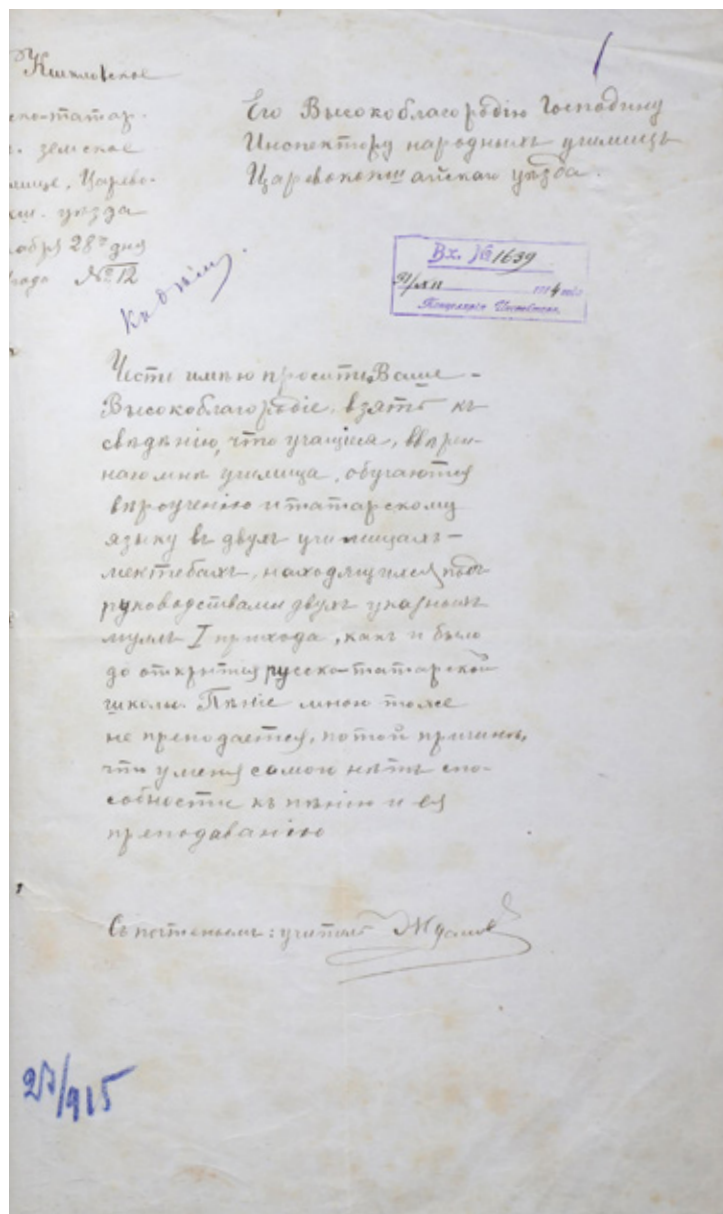 ско-татар.
земское
лище, Царево-
кш. уѣзда
ября 28го дня
года №12
Его Высокоблагородію Господину
Инспектору народныхъ училищъ
Царевококшайскаго уѣзда.
Къ дѣлу.
Вх. №1639
31/XII 1914 года
Канцелярія Инспектора.
Честь имѣю просить Ваше-
Высокоблагородіе, взять къ
свѣдѣнію, что учащіеся, ввѣрен-
наго мнѣ училища, обучаются
вѣроученію и татарскому
языку въ двухъ училищахъ-
мектебахъ, находящихся подъ
руководствами двухъ указныхъ
муллъ I прихода, какъ и было
до открытія русско-татарской
школы. Пѣніе мною тоже
не преподается, по той причинѣ,
что у меня самого нѣтъ спо-
собности къ пѣнію и ея
преподаванію
Съ почтеньемъ: учитель
27/915